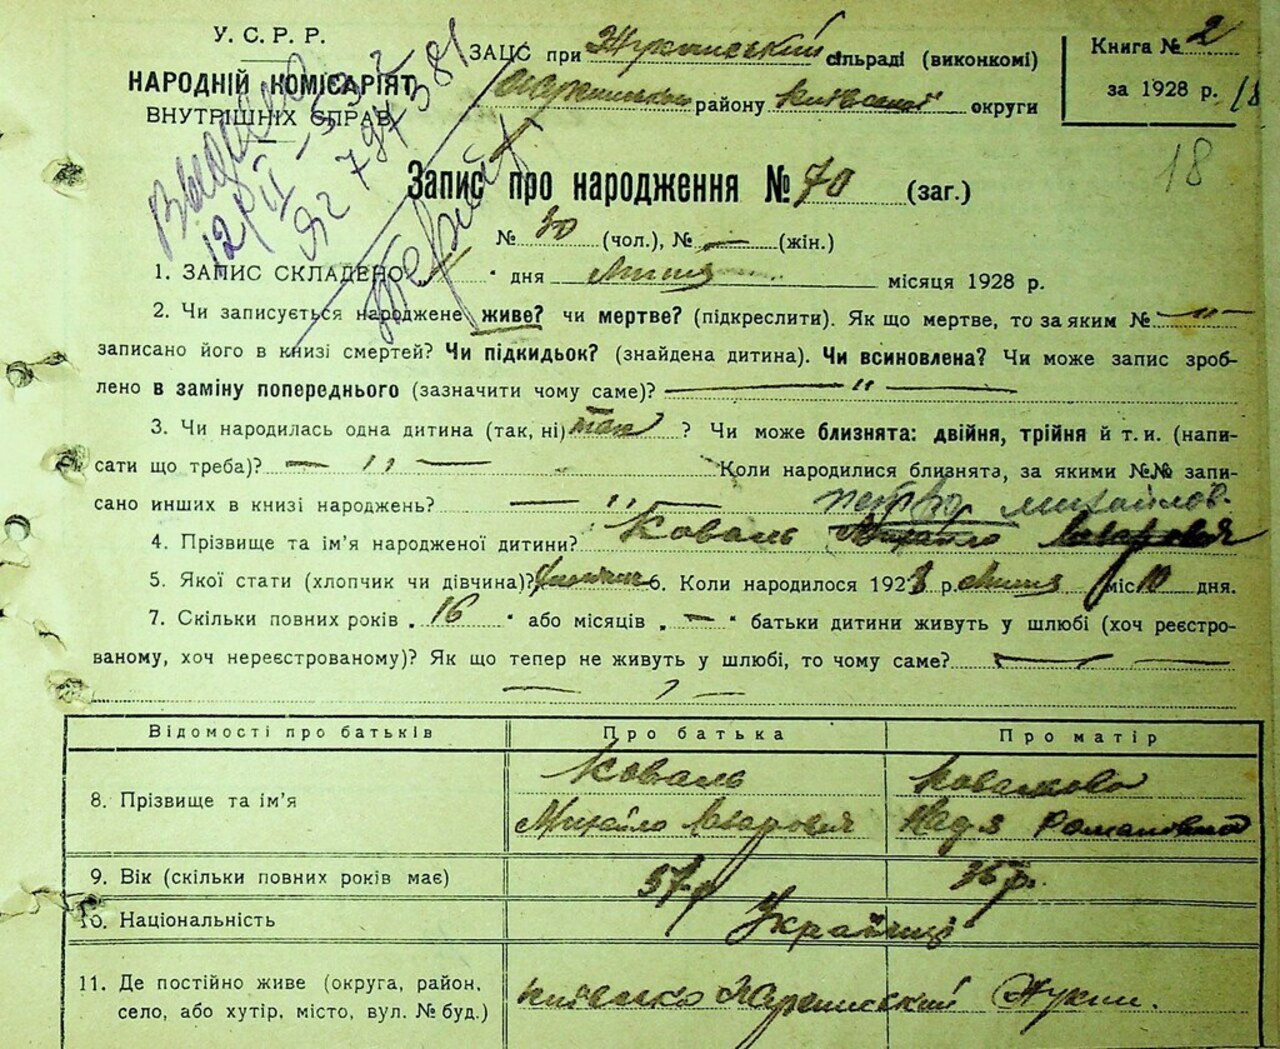 У. С. Р. Р.
НАРОДНІЙ КОМІСАРІЯТ
ВНУТРІШНІХ СПРАВ
ЗАЦС при Жукинський сільраді (виконкомі)
району Київської округи
Книга № 2
за 1928 р.
18
Запис про народження № 70 (заг.)
№ 30 (чол.), № — (жін.)
1. ЗАПИС СКЛАДЕНО " дня липня місяця 1928 р.
2. Чи записується народжене живе? чи мертве? (підкреслити). Як що мертве, то за яким № — " —
записано його в книзі смертей? Чи підкидьок? (знайдена дитина). Чи всиновлена? Чи може запис зроб-
лено в заміну попереднього (зазначити чому саме)? — " —
3. Чи народилась одна дитина (так, ні) так ? Чи може близнята: двійня, трійня й т. и. (напи-
сати що треба)? — " — Коли народилися близнята, за якими №№ запи-
сано инших в книзі народжень? — " — Петро Михайлов.
4. Прізвище та ім'я народженої дитини? Коваль Михайло Лазарович
5. Якої стати (хлопчик чи дівчина)? хлопчик 6. Коли народилося 1928 р. липня міс 10 дня.
7. Скільки повних років „ 16 " або місяців „ — " батьки дитини живуть у шлюбі (хоч реєстро-
ваному, хоч нереєстрованому)? Як що тепер не живуть у шлюбі, то чому саме? — —
— " —
Відомості про батьків Про батька Про матір
8. Прізвище та ім'я Коваль Ковальова
Михайло Лазарович Надя Романовна
9. Вік (скільки повних років має) 37 р 36 р.
10. Національність Українці
11. Де постійно живе (округа, район,
село, або хутір, місто, вул. № буд.) Київсько Жукин.